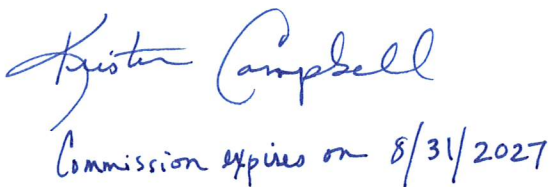 Kristen Campbell
Commission expires on 8/31/2027